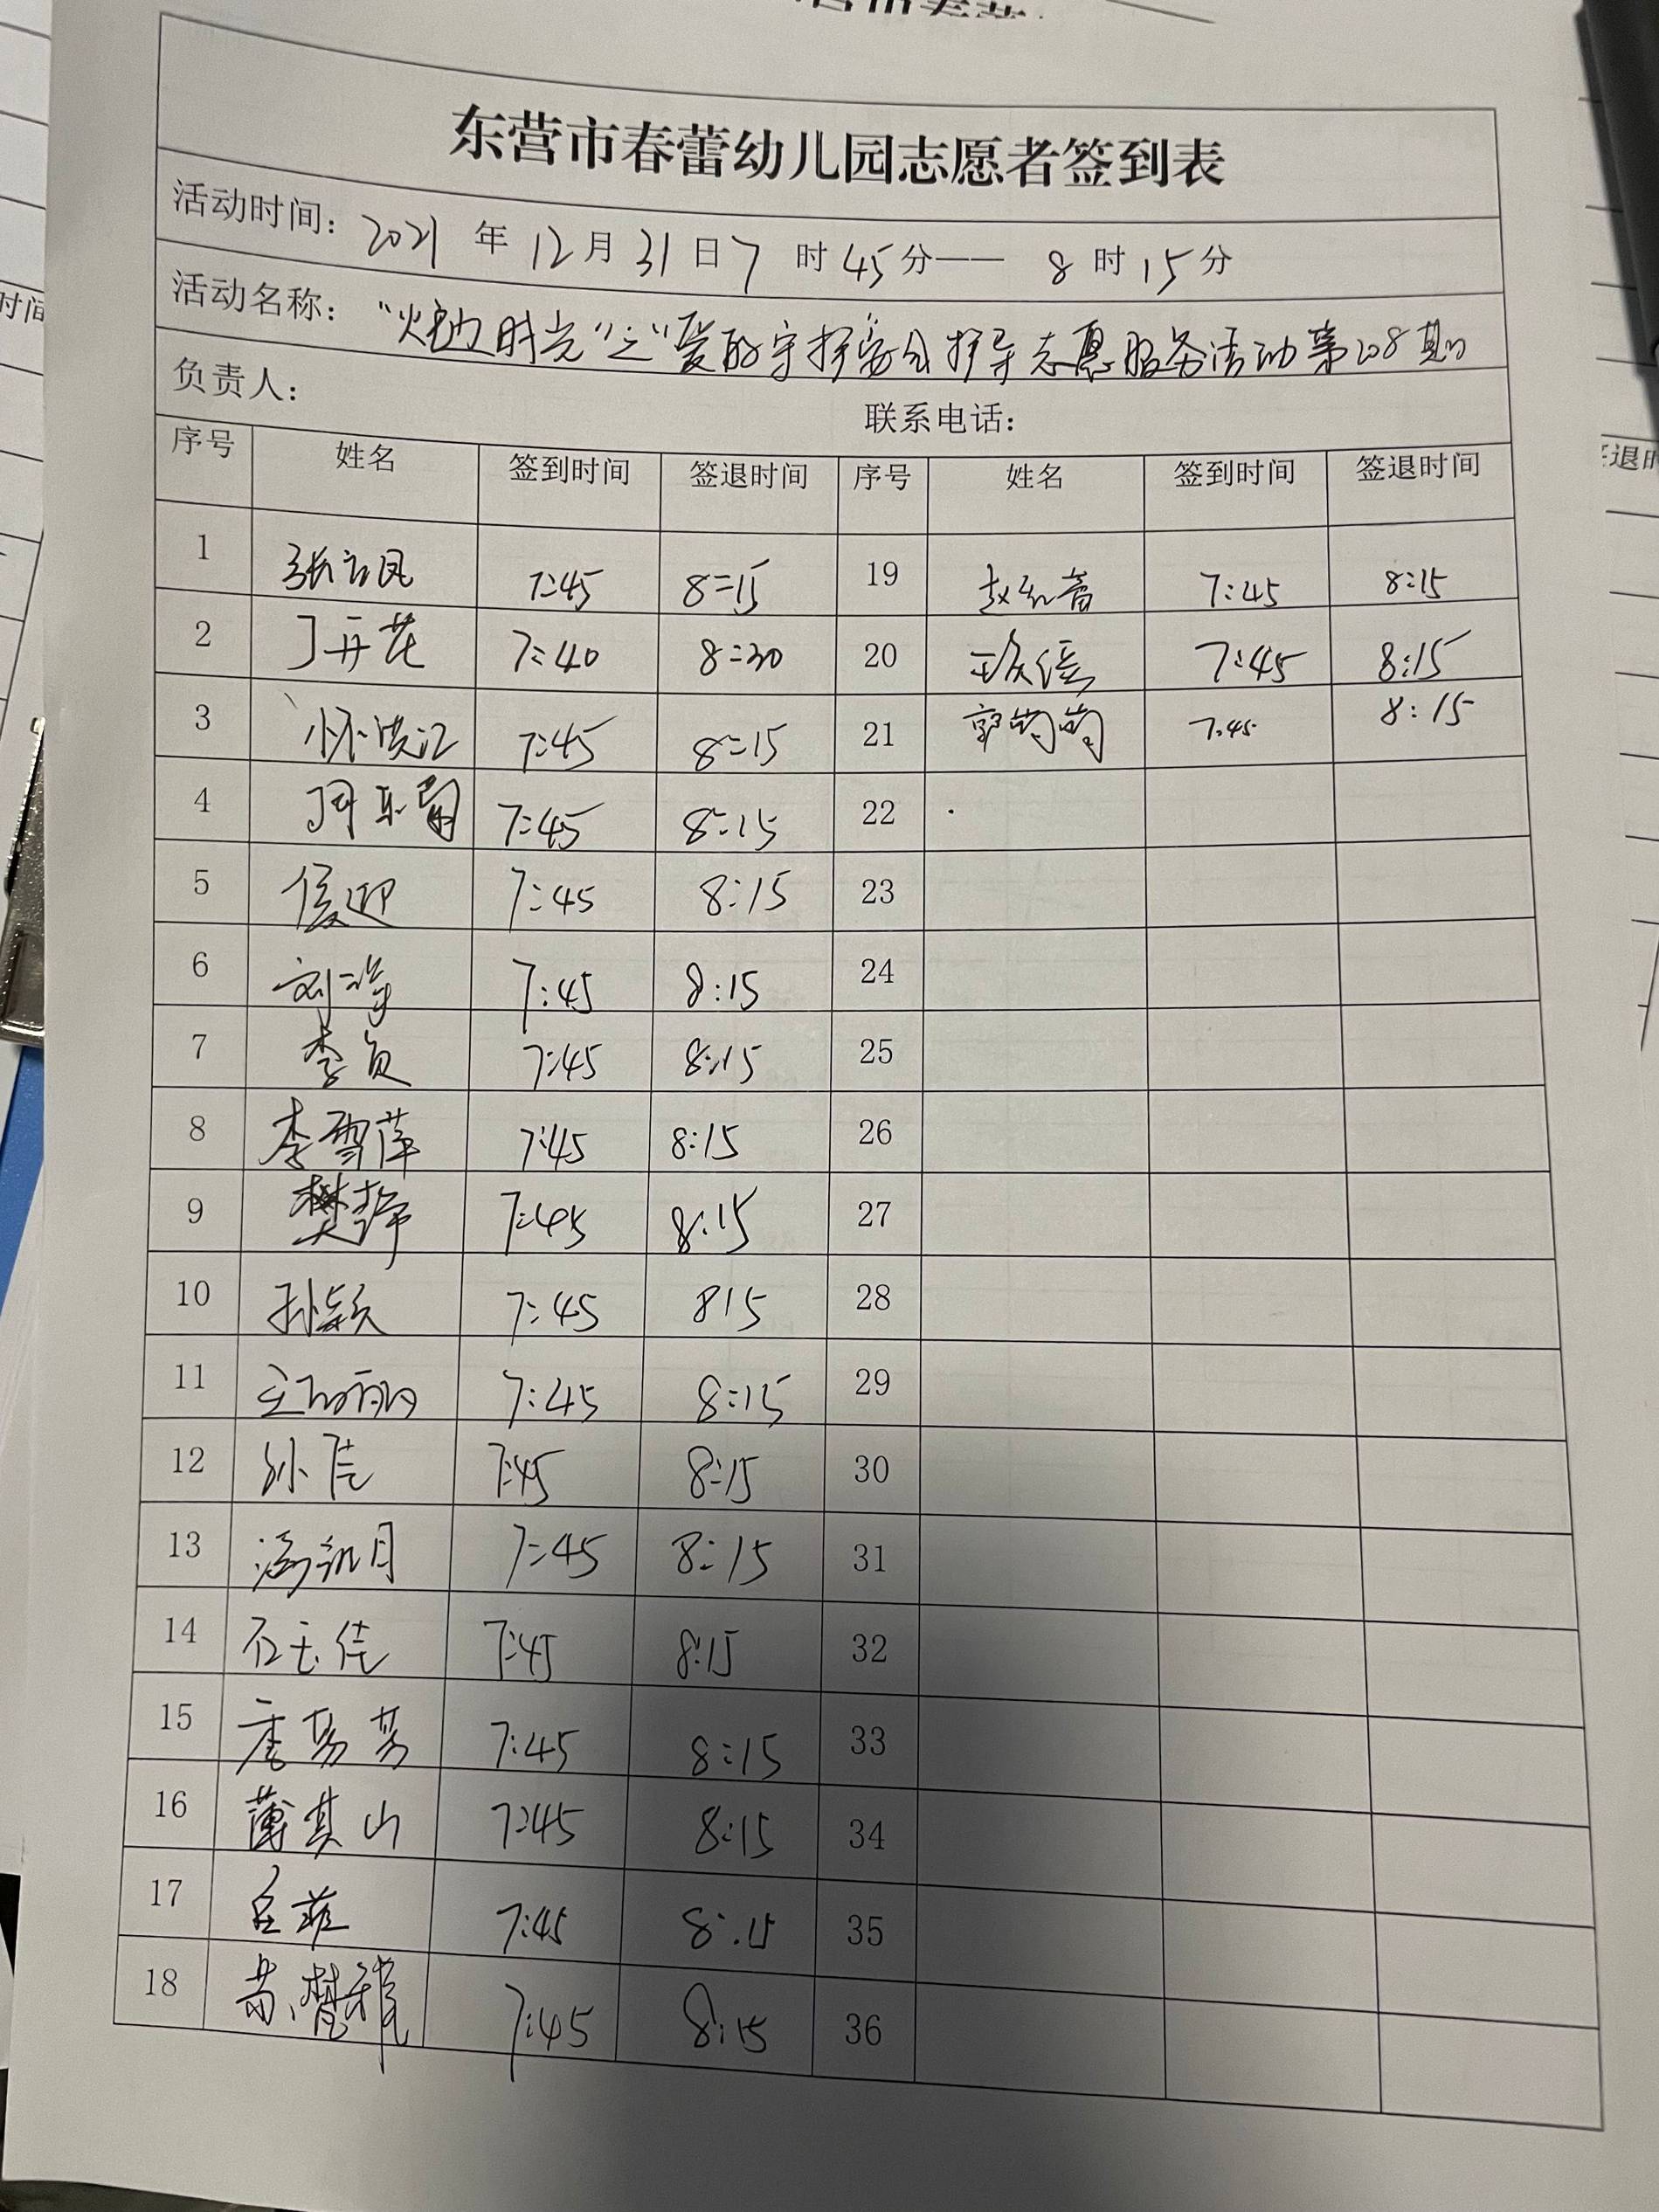 东营市春蕾幼儿园志愿者签到表
活动时间: 2021 年 12 月 31 日 7 时 45 分—— 8 时 15 分
活动名称: 时光"之"爱的守护安全护导志愿服务活动第208期
负责人: 联系电话:
序号 姓名 签到时间 签退时间 序号 姓名 签到时间 签退时间
1 7:45 8:15 19 7:45 8:15
2 丁开花 7:40 8:30 20 7:45 8:15
3 7:45 8:15 21 郭茜茜 7:45 8:15
4 7:45 8:15 22
5 侯迎 7:45 8:15 23
6 7:45 8:15 24
7 李贞 7:45 8:15 25
8 李雪萍 7:45 8:15 26
9 樊静 7:45 8:15 27
10 孙颖 7:45 815 28
11 7:45 8:15 29
12 7:45 8:15 30
13 7:45 8:15 31
14 石玉佳 7:45 8:15 32
15 7:45 8:15 33
16 薄其山 7:45 8:15 34
17 7:45 8:15 35
18 7:45 8:15 36